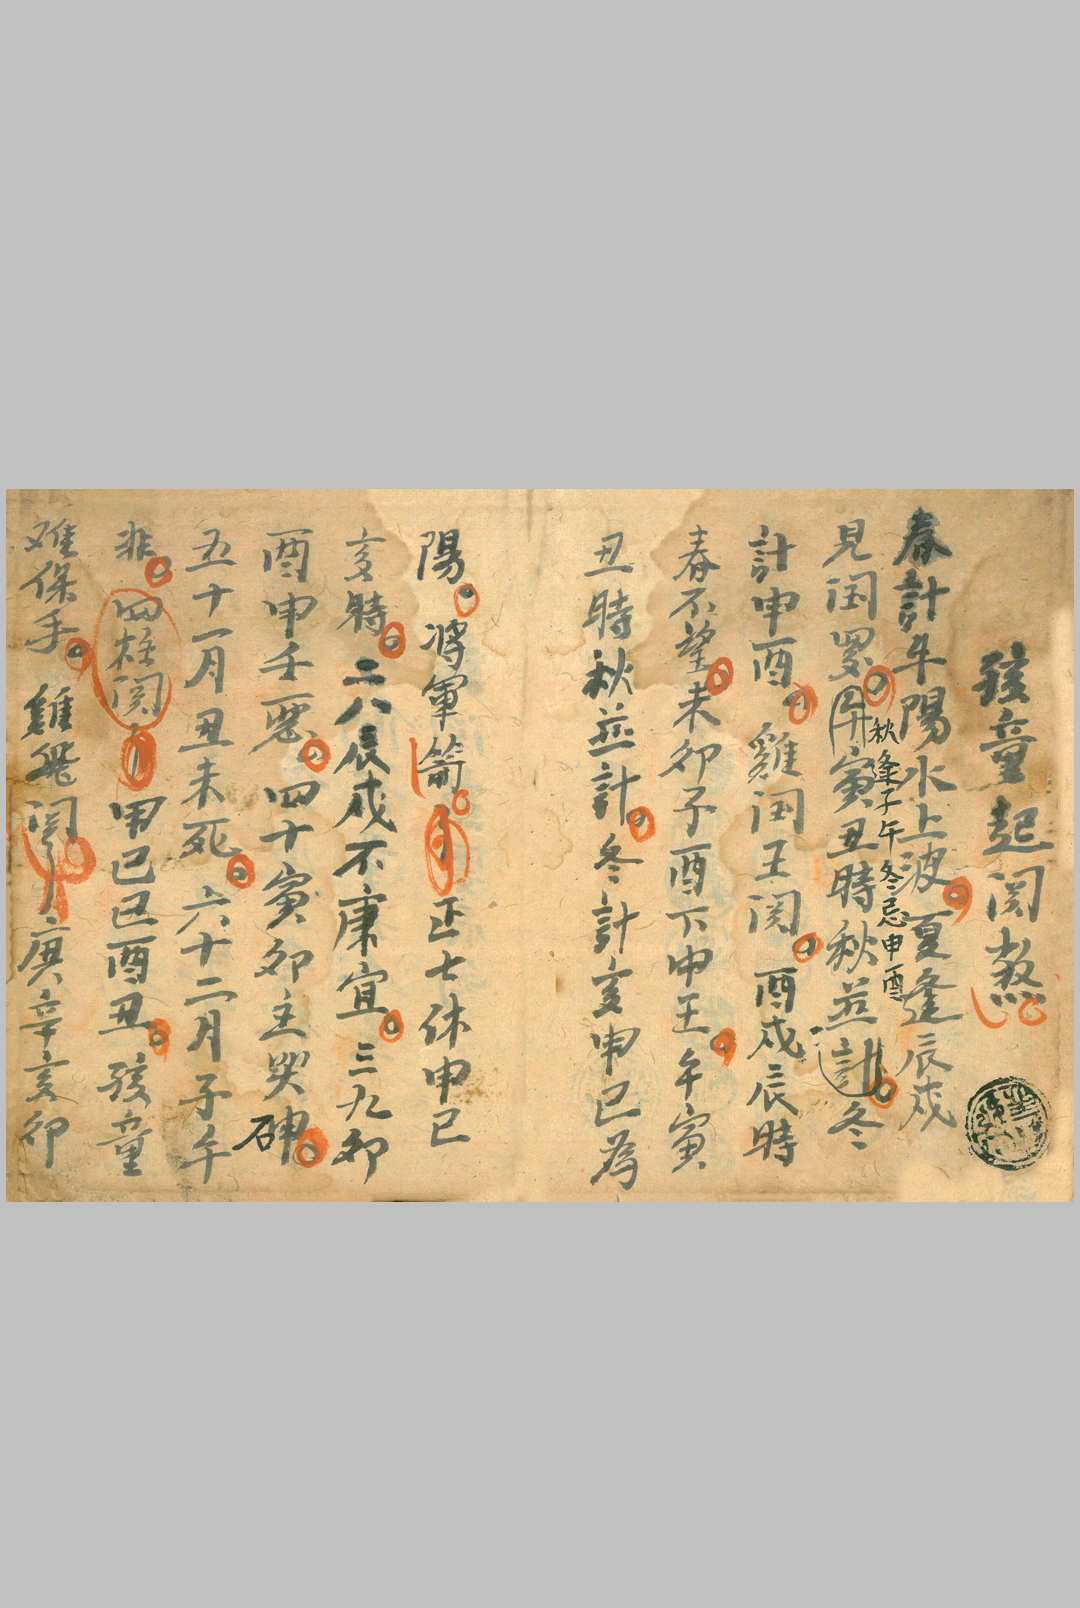 孩童起関煞
春計牛陽水上波夏逢辰戍
秋逢子午冬忌申酉
見闰累丹寅丑時秋並計冬
計申酉雞闰王関酉戍辰時
春不望未卯子酉下申王午寅
丑時秋並計冬計亥申巳為
陽将軍箭正七休申巳
亥時二八辰戍不庚宜三九卯
酉申壬惡四十寅卯主哭砷
五十一月丑未死六十二月子午
非四柱関甲己巳酉丑孩童
难保手雞飛関庚辛亥卯